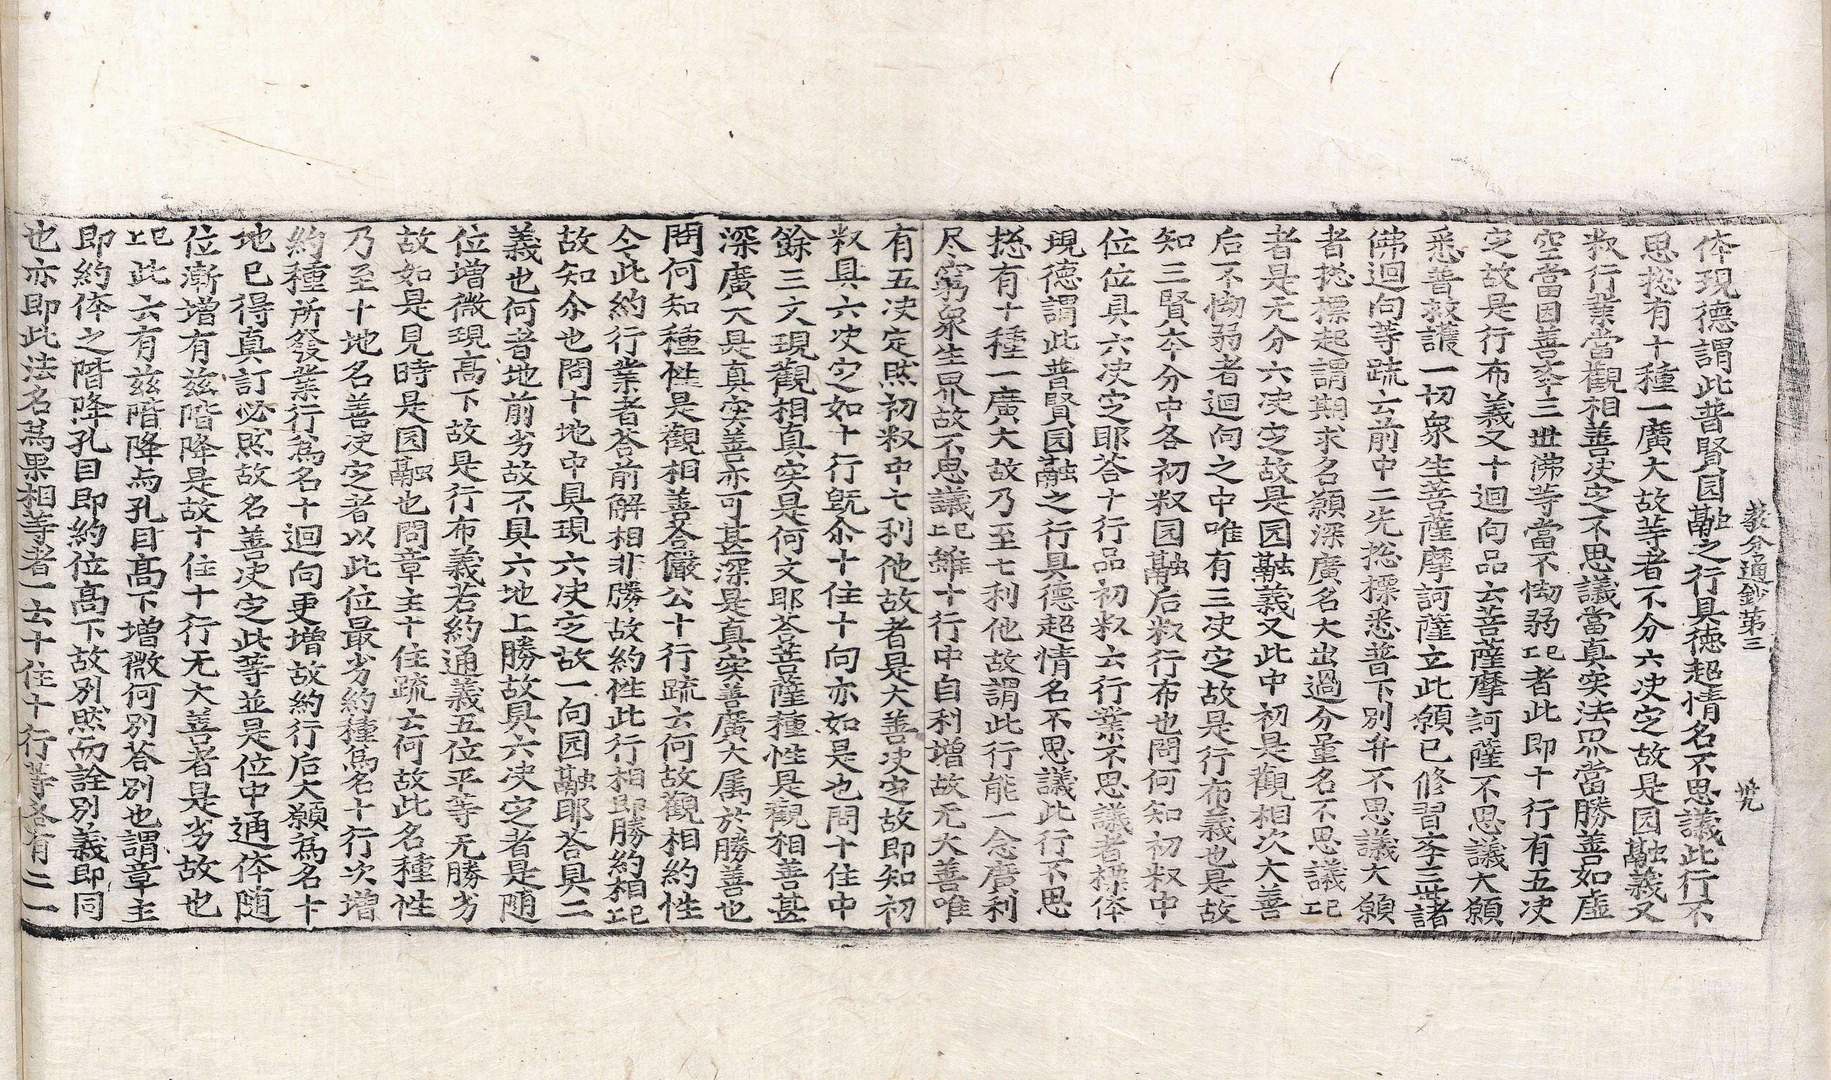 教分通鈔第三 㐂
体現德謂此普賢囩融之行具德超情名不思議此行不
思揔有十種一廣大故等者不分六决㝎故是囩融義又
叙行業當觀相善决㝎不思議當真实法界當勝善如虛
空當因善夲三世佛等當不㤕弱㔾者此即十行有五决
㝎故是行布義又十迴向品云菩薩摩訶薩不思議大願
悉普救護一切衆生菩薩摩訶薩立此願已修習夲三世諸
佛迴向等䟽云前中二先揔標悉普下別弁不思議大願
者揔標起謂期求名願深廣名大出過分量名不思議㔾
者是无分六决㝎故是囩融義又此中初是觀相次大善
后不㤕弱者迴向之中唯有三决㝎故是行布義也是故
知三賢夲分中各初叙囩融后叙行布也問何知初叙中
位位具六决㝎耶荅十行品初叙云行業不思議者標体
現德謂此普賢囩融之行具德超情名不思議此行不思
揔有十種一廣大故乃至七利他故謂此行能一念廣利
尽窮衆生界故不思議㔾維十行中自利增故无大善唯
有五决定然初叙中七利他故者是大善决㝎故即知初
叙具六决㝎如十行旣尒十住十向亦如是也問十住中
餘三文現觀相真实是何文耶荅菩薩種性是觀相善甚
深廣大是真实善亦可甚深是真实善廣大属於勝善也
問何知種性是觀相善荅儼公十行䟽云何故觀相約性
今此約行業者荅前解相非勝故約性此行相即勝約相㔾
故知尒也問十地中具現六决㝎故一向囩融耶荅具二
義也何者地前劣故不具六地上勝故具六决㝎者是随
位增微現高下故是行布義若約通義五位平等无勝劣
故如是見時是囩融也問章主十住䟽云何故此名種性
乃至十地名善决㝎者以此位最劣約種為名十行次增
約種所發業行為名十迴向更增故約行后大願為名十
地已得真訂必然故名善决㝎此等並是位中通体随
位漸增有玆階降是故十住十行无大善者是劣故也
㔾此云有玆階降与孔目高下增微何別荅別也謂章主
即約体之階降孔目即約位高下故別然勿詮別義即同
也亦即此法名為果相等者一云十住十行等各有二一